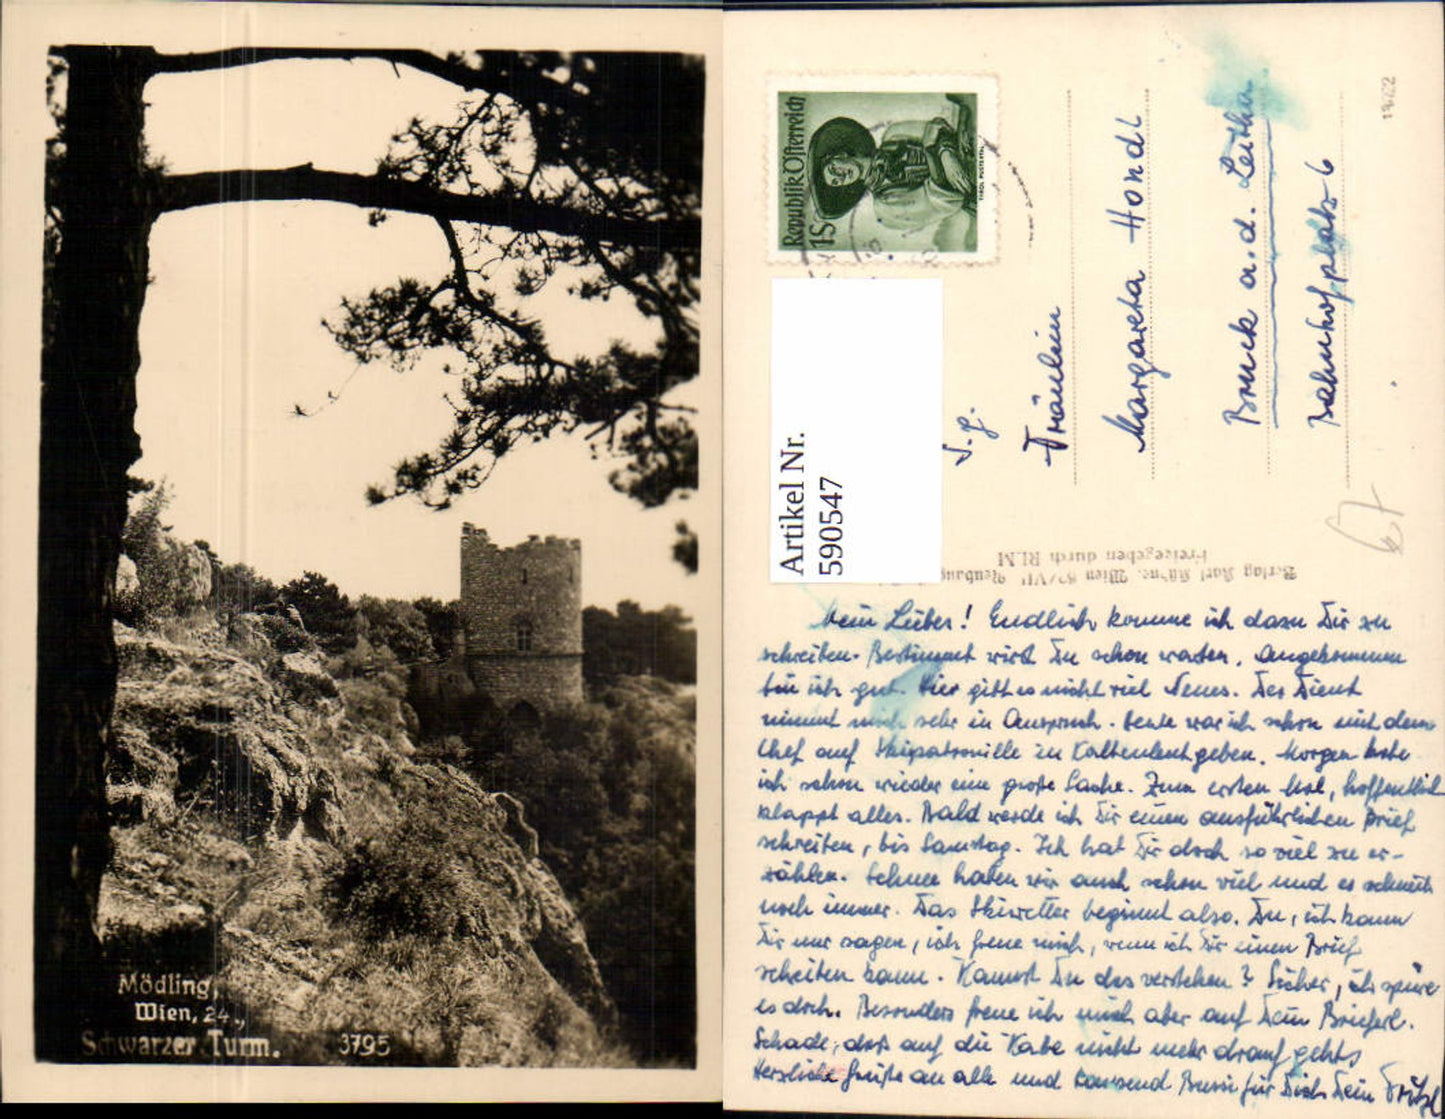 Mödling,
Wien, 24.,
Schwarzer Turm. 3795
Republik Österreich
1S
TIROL PUSTERTAL
Artikel Nr.
590547
S.g.
Fräulein
Margareta Hondl
Bruck a.d. Leitha
Bahnhofplatz 6
67
Verlag Karl Kühne, Wien 62/VII Neubaug
Freigegeben durch RLM
Mein Lieber! Endlich komme ich dazu Dir zu
schreiben. Bestimmt wirst Du schon warten. Angekommen
bin ich gut. Hier gibt es nicht viel Neues. Der Dienst
nimmt mich sehr in Anspruch. Heute war ich schon mit dem
Chef auf Skipatrouille in Kaltenleutgeben. Morgen habe
ich schon wieder eine große Sache. Zum ersten Mal, hoffentlich
klappt alles. Bald werde ich Dir einen ausführlichen Brief
schreiben, bis Samstag. Ich hab Dir doch so viel zu er-
zählen. Schnee haben wir auch schon viel und es schneit
noch immer. Das Skiwetter beginnt also. Du, ich kann
Dir nur sagen, ich freue mich, wenn ich Dir einen Brief
schreiben kann. Kannst Du das verstehen? Sicher, ich spüre
es doch. Besonders freue ich mich aber auf Dein Brieferl.
Schade, daß auf die Karte nicht mehr drauf gehts
Herzliche Grüße an alle und tausend Bussi für Dich Dein Fritzl